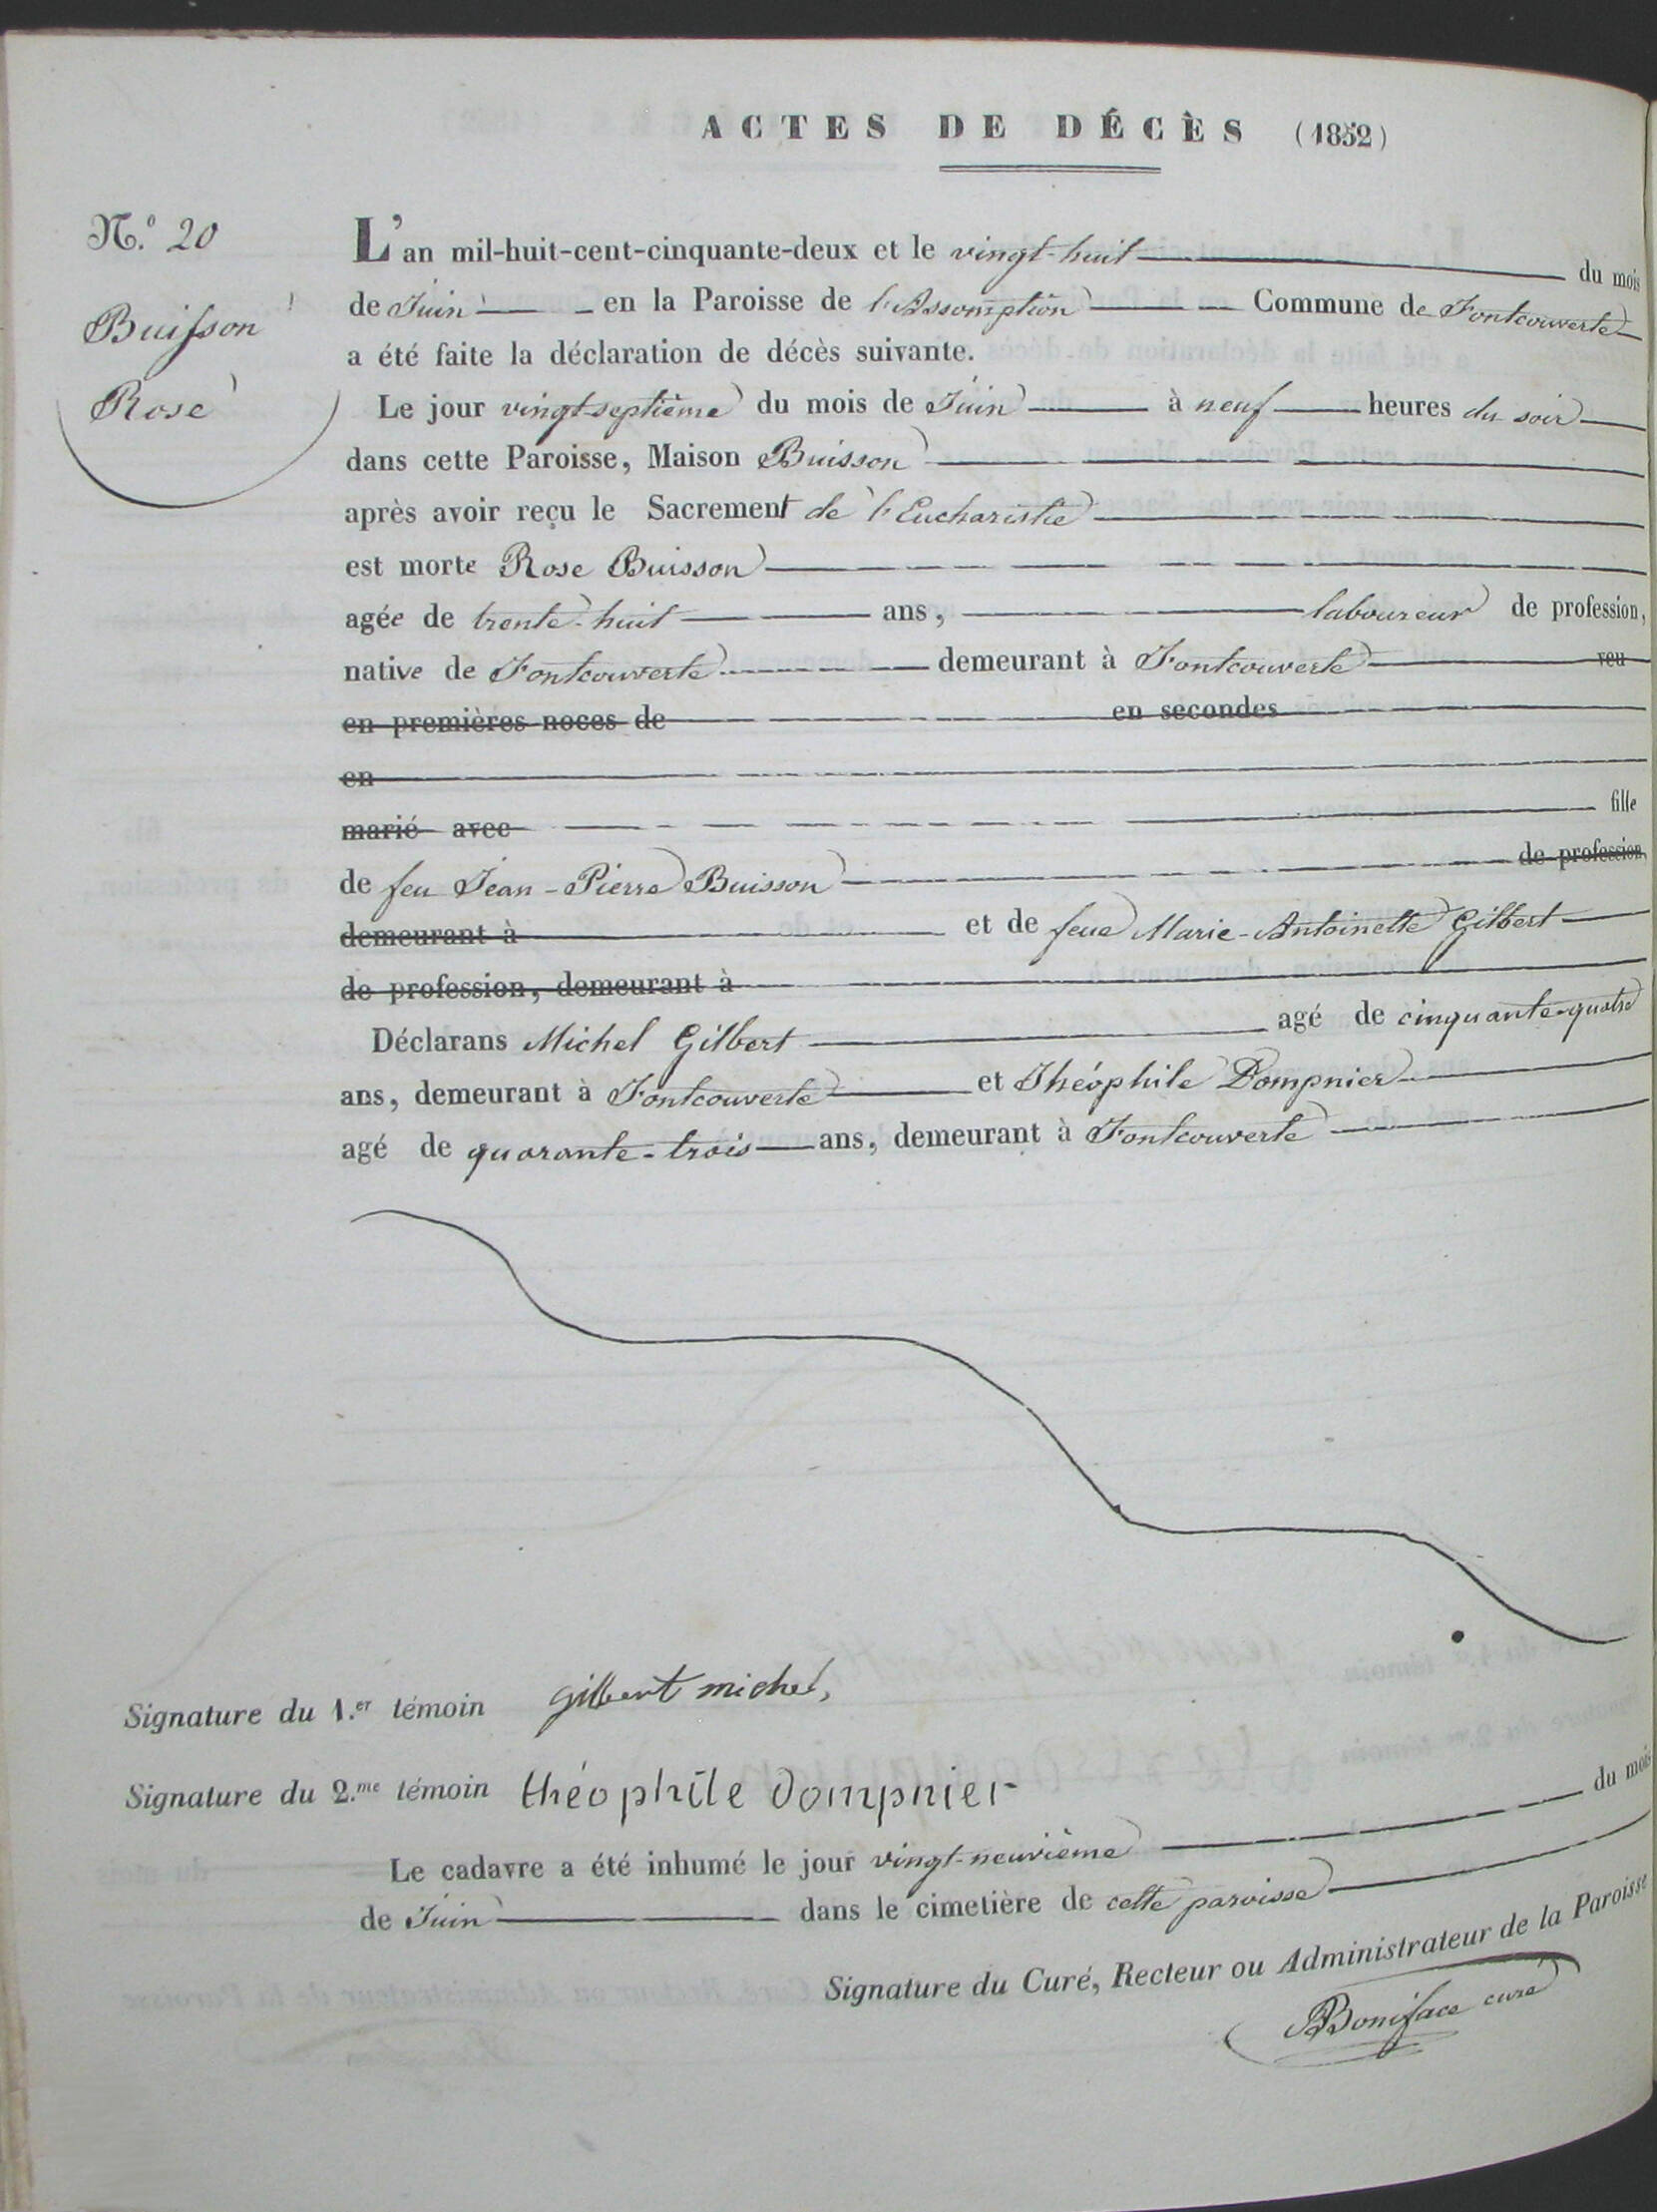 ACTES DE DÉCÈS (1852)
N.° 20
Buisson
Rose
L'an mil-huit-cent-cinquante-deux et le vingt-huit du mois
de Juin en la Paroisse de l'Assomption Commune de Fontcouverte
a été faite la déclaration de décès suivante.
Le jour vingt-septième du mois de Juin à neuf heures du soir
dans cette Paroisse, Maison Buisson
après avoir reçu le Sacrement de l'Eucharistie
est morte Rose Buisson
agée de trente-huit ans, laboureur de profession,
native de Fontcouverte demeurant à Fontcouverte veu
en premières noces de en secondes
en
marié avec fille
de feu Jean-Pierre Buisson de profession,
demeurant à et de feue Marie-Antoinette Gilbert
de profession, demeurant à
Déclarans Michel Gilbert agé de cinquante-quatre
ans, demeurant à Fontcouverte et Théophile Dompnier
agé de quarante-trois ans, demeurant à Fontcouverte
Signature du 1.er témoin gilbert michel,
Signature du 2.me témoin théophile dompnier
Le cadavre a été inhumé le jour vingt-neuvième du mois
de Juin dans le cimetière de cette paroisse
Signature du Curé, Recteur ou Administrateur de la Paroisse
Boniface curé